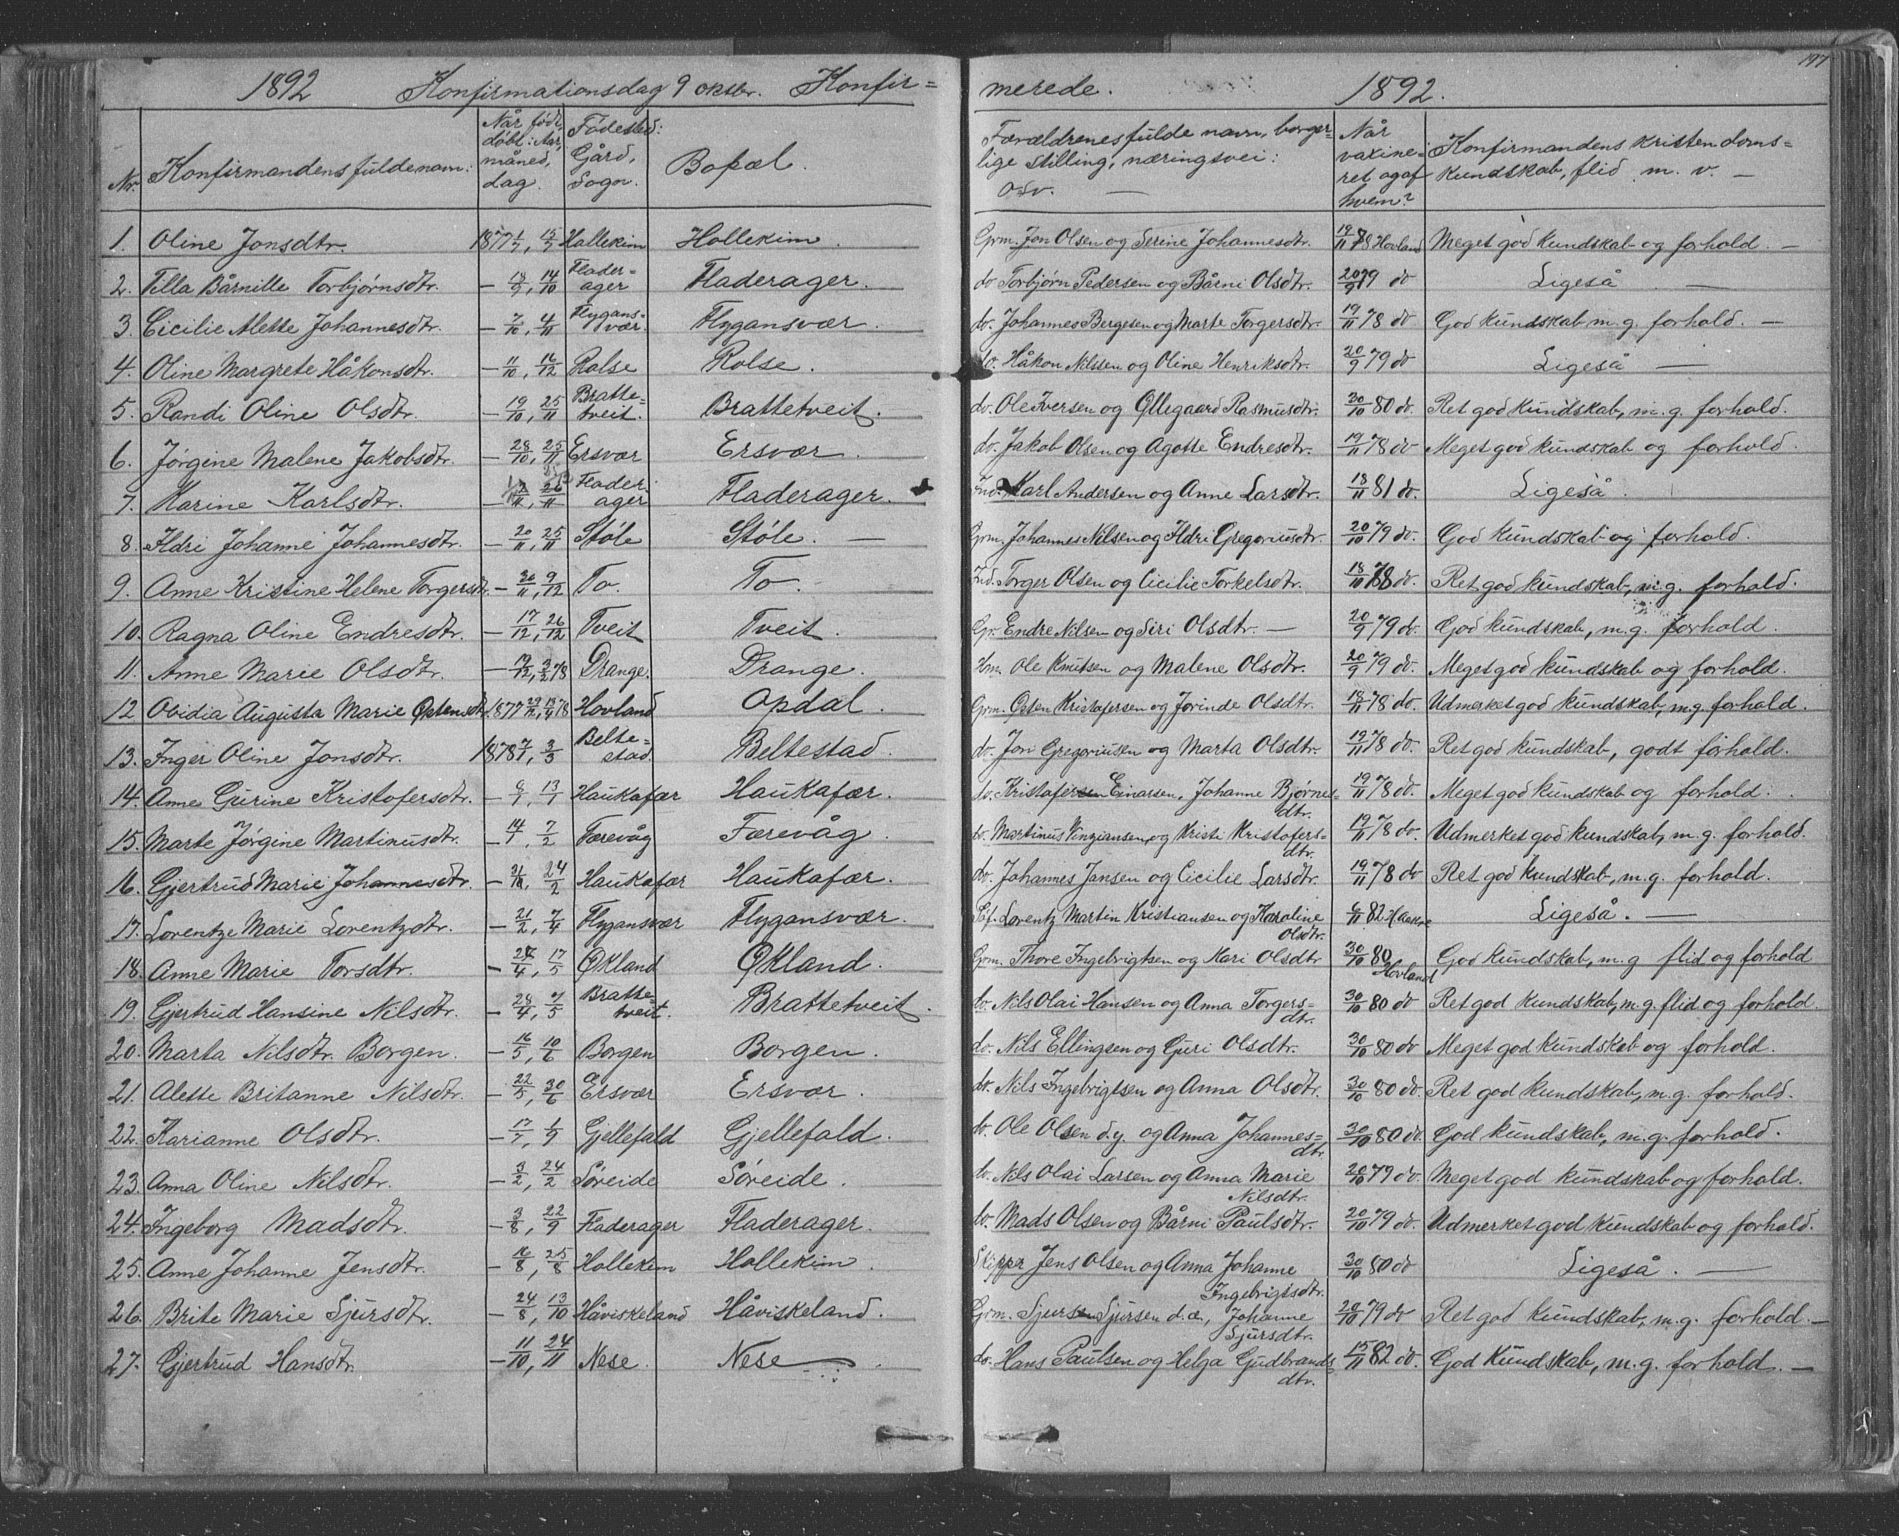 197
1892 Konfirmationsdag 9 oktbr. Konfir=merede. 1892.
Nr. Konfirmandens fulde navn: Når født, døbt: Aar, måned, dag. Fødested: Gård, Sogn. Bopæl. Forældrenes fulde navn, borgerlige stilling, næringsvei: osv. — Når vaxineret og af hvem? Konfirmandens kristendomskundskab, flid m. v. —
1. Oline Jonsdtr. 1877 1/7, 15/7 Hollekim Hollekim. Grm. Jon Olsen og Serine Johannesdtr. 19/11 78 Hovland Meget god kundskab og forhold. —
2. Tilla Bårnille Torbjørnsdtr. — 18/9, 14/10 Flader=ager Fladerager. do Torbjørn Pedersen og Bårni Olsdtr. 20/9 79 do Ligeså —
3. Cicilie Alette Johannesdtr. — 7/10, 4/11 Flygans=vær. Flygansvær. do. Johannes Bergesen og Marte Torgersdtr. 19/11 78 do God kundskab m. g. forhold. —
4. Oline Margrete Håkonsdtr. — 11/10, 16/12 Rolse Rolse. do. Håkon Nilssen og Oline Henriksdtr. 20/9 79 do Ligeså —
5. Randi Oline Olsdtr. — 19/10, 25/11 Bratte=tveit. Brattetveit. do. Ole Iversen og Øllegaard Rasmusdtr. 30/10 80 do. Ret god kundskab, m. g. forhold.
6. Jørgine Malene Jakobsdtr. — 28/10, 25/11 Ersvær Ersvær. do. Jakob Olsen og Agotte Endresdtr. 19/11 78 do Meget god kundskab og forhold.
7. Karine Karlsdtr. — /11, /11 Flader=ager Fladerager. Ind. Karl Andersen og Anne Larsdtr. 18/11 81 do. Ligeså.
8. Ildri Johanne Johannesdtr. — 20/11, 25/11 Støle Støle. — Grm. Johannes Nilsen og Ildri Gregoriusdtr. 20/10 79 do. God kundskab og forhold.
9. Anne Kristine Helene Torgersdtr. — 30/11, 9/12 To. To. Ind. Torger Olsen og Cicilie Torkelsdtr. 18/11 78 do. Ret god kundskab, m. g. forhold.
10. Ragna Oline Endresdtr. — 17/12, 26/12 Tveit Tveit. Gr. Endre Nilsen og Siri Olsdtr. — 20/9 79 do. God kundskab, m. g. forhold.
11. Anne Marie Olsdtr. — /12, 3/2 78 Drange. Drange. Hm. Ole Knutsen og Malene Olsdtr. 20/9 79 do. Meget god kundskab og forhold.
12 Obidia Augusta Marie Østensdtr. 1877 29/12, 78 Hovland Opdal. Grm. Østen Kristofersen og Jorinde Olsdtr. 18/11 78 do. Udmerket god kundskab, m.g. forhold.
13. Inger Oline Jonsdtr. 1878 7/1, 3/3 Belte=stad. Beltestad. do. Jon Gregoriusen og Marta Olsdtr. 19/11 78 do. Ret god kundskab, godt forhold.
14. Anne Gurine Kristofersdtr. — 6/1, 13/1 Haukafær Haukafær. do. Kristofersen Einarsen, Johanne Bjørnes=dtr. 19/11 78 do. Meget god kundskab og forhold.
15. Marte Jørgine Martinusdtr. — 14/1, 7/2 Færevåg Færevåg. do. Martinus Vinzjansen og Kristi Kristofers=dtr. 19/11 78 do. Udmerket god kundskab, m. g. forhold.
16. Gjertrud Marie Johannesdtr. — , 24/2 Haukafær Haukafær. do. Johannes Jansen og Cicilie Larsdtr. 19/11 78 do Ret god kundskab, m. g. forhold.
17. Lorentze Marie Lorentzdtr. — 21/2, 7/4 Flygansvær Flygansvær. Lorentz Martin Kristiansen og Karoline Olsdtr. 6/11 82 Haakre Ligeså. —
18. Anne Marie Torsdtr. — /4, 17/5 Økland Økland. Grm. Thore Ingebrigtsen og Kari Olsdtr 30/10 80 Hovland God kundskab, m. g flid og forhold
19. Gjertrud Hansine Nilsdtr. — 28/4, /5 Bratte=tveit. Brattetveit. do. Nils Olai Hansen og Anna Torgers=dtr. 30/10 80 do Ret god kundskab, m. g. flid og forhold.
20. Marta Nilsdtr. Borgen. — 16/5, 10/6 Borgen Borgen. do. Nils Ellingsen og Guri Olsdtr. 30/10 80 do Meget god kundskab og forhold.
21. Alette Britanne Nilsdtr. — 22/5, 30/6 Ersvær Ersvær. do. Nils Ingebrigtsen og Anna Olsdtr. 30/10 80 do. Ret god kundskab, m. g. forhold.
22. Karianne Olsdtr. — 17/7, 1/9 Gjellefald Gjellefald. do. Ole Olsen d. y. og Anna Johannes=dtr 30/10 80 do. God kundskab, m. g. forhold.
23. Anna Oline Nilsdtr. — 3/2, 24/2 Søreide Søreide. do. Nils Olai Larsen og Anna Marie Nilsdtr. 20/10 79 do. Meget god kundskab og forhold.
24. Ingeborg Madsdtr. — 3/8, 22/9 Fladerager Fladerager. do. Mads Olsen og Bårni Paulsdtr. 20/10 79 do. Udmerket god kundskab og forhold.
25. Anne Johanne Jensdtr. — /8, 25/8 Hollekim Hollekim. Skipper Jens Olsen og Anna Johanne Ingebrigtsdtr. 30/10 80 do Ligeså. —
26. Brite Marie Sjursdtr. — 24/8, 13/10 Håviskeland Håviskeland. Grm. Sjursen Sjursen d. æ., Johanne Sjursdtr. 20/10 79 do Ret god kundskab, m. g. forhold. —
27. Gjertrud Hansdtr. — 11/10, 24/11 Nese. Nese. do. Hans Paulsen og Helga Gudbrands dtr. 15/11 82 do. God kundskab, m. g. forhold. —